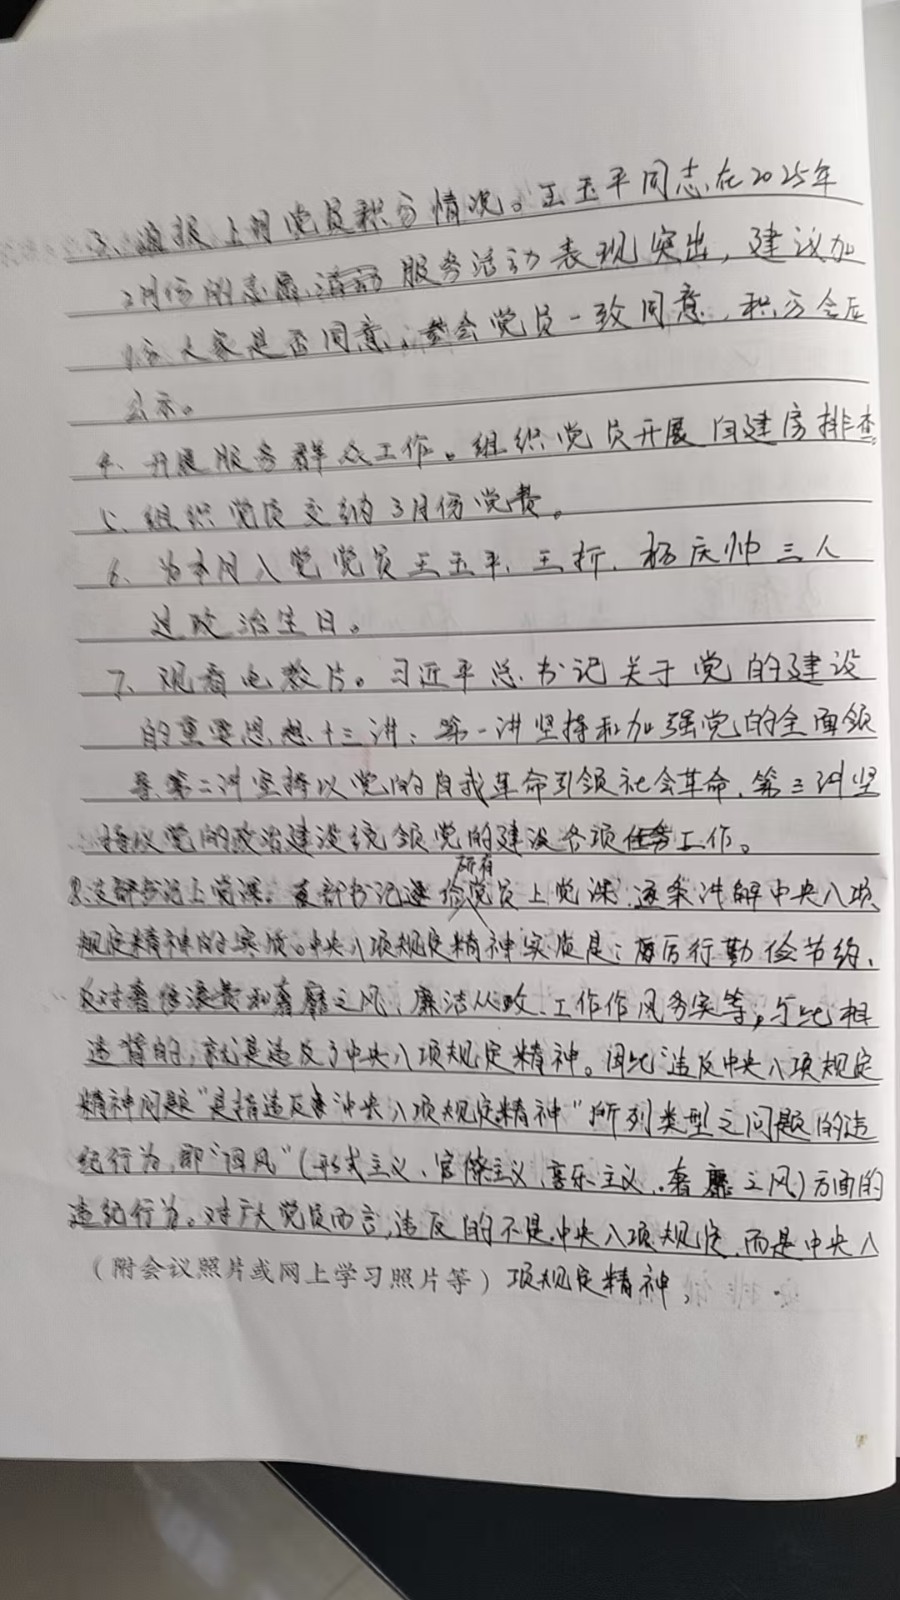 3、通报上月党员积分情况。王玉平同志在2025年
2月份的志愿服务活动表现突出，建议加
1分大家是否同意。参会党员一致同意，积分会后
公示。
4、开展服务群众工作。组织党员开展自建房排查。
5、组织党员交纳3月份党费。
6、为本月入党党员王玉平、王折、杨庆帅三人
过政治生日。
7、观看电教片。习近平总书记关于党的建设
的重要思想十三讲：第一讲坚持和加强党的全面领
导、第二讲坚持以党的自我革命引领社会革命、第三讲坚
持以党的政治建设统领党的建设各项工作。
8.支部书记上党课。支部书记给所有党员上党课，逐条讲解中央八项
规定精神的实质。中央八项规定精神实质是：厉行勤俭节约、
反对奢侈浪费和奢靡之风、廉洁从政、工作作风务实等，与此相
违背的，就是违反了中央八项规定精神。因此"违反中央八项规定
精神问题"是指违反"中央八项规定精神"所列类型之问题的违
纪行为，即"四风"(形式主义、官僚主义、享乐主义、奢靡之风)方面的
违纪行为。对广大党员而言，违反的不是中央八项规定，而是中央八
（附会议照片或网上学习照片等）项规定精神，